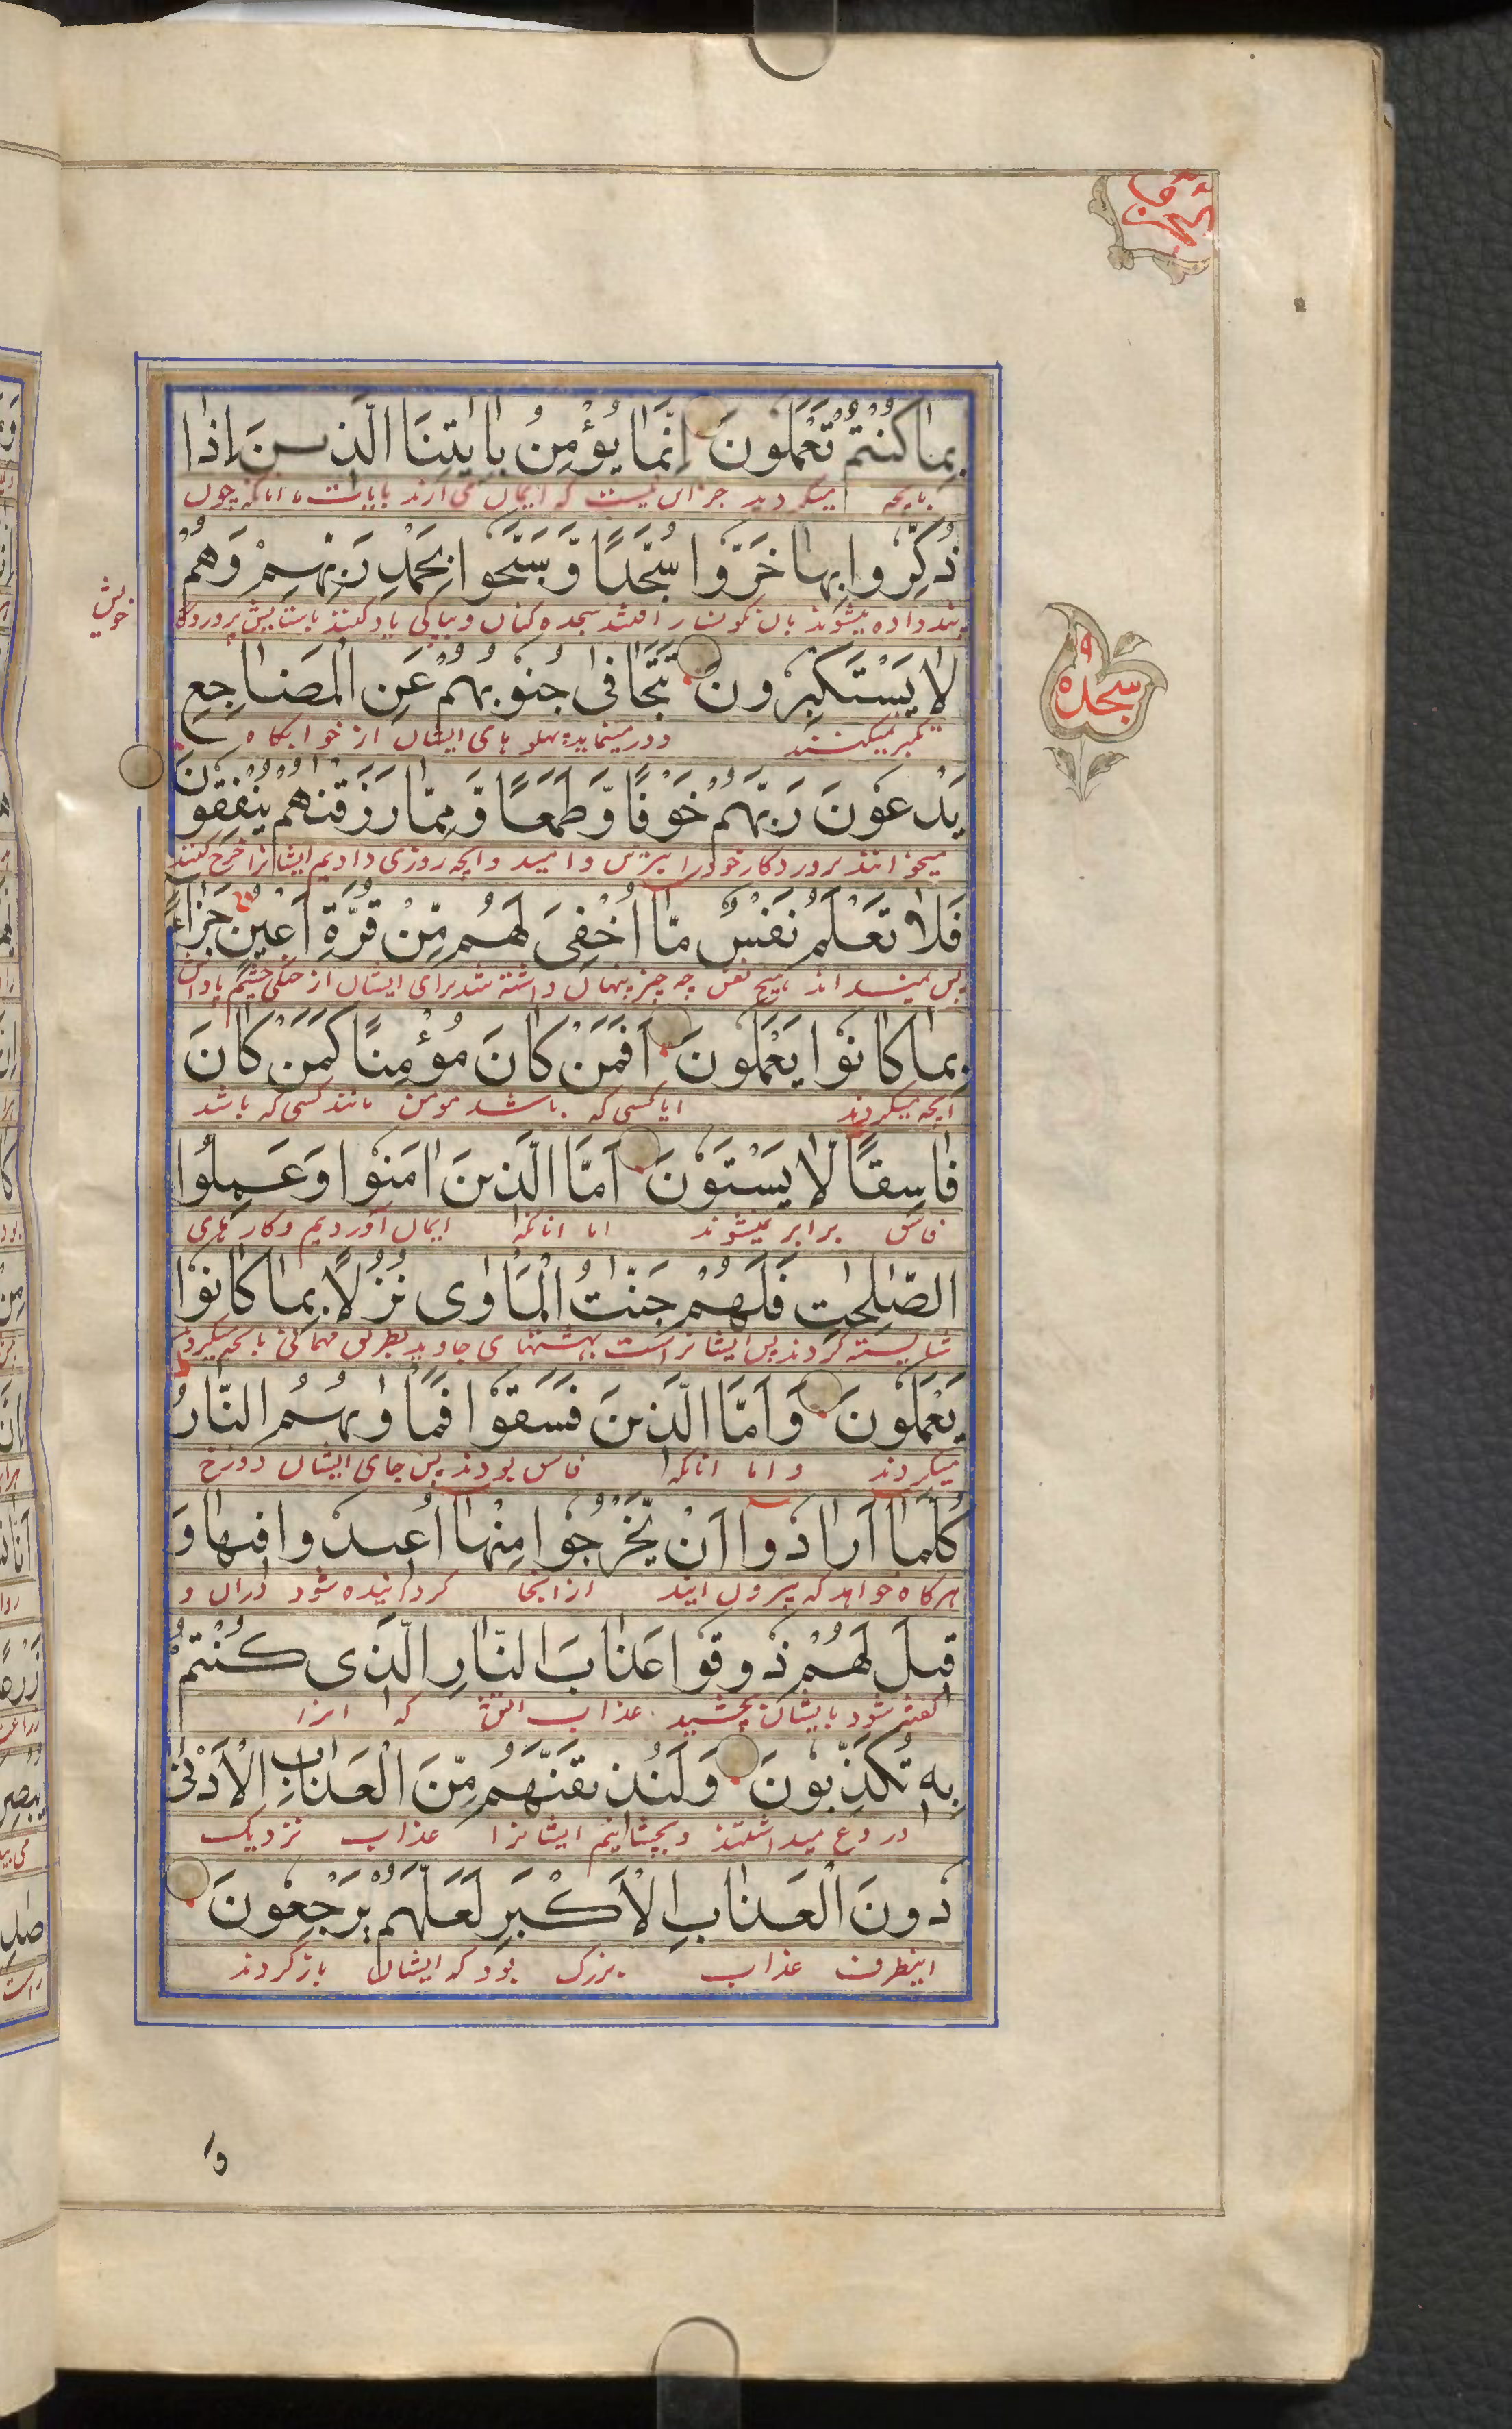 بِمَا كُنْتُمْ تَعْمَلُونَ اِنَّمَا يُؤْمِنُ بِاٰيٰتِنَا الَّذِينَ اِذَا
ميكرديد جز اين نيست كه ايمان مى ارند بايات ما انانكه چون
ذُكِّرُوا بِهَا خَرُّوا سُجَّدًا وَّ سَبَّحُوا بِحَمْدِ رَبِّهِمْ وَهُمْ
پند داده ميشوند بان نكونسار افتند سجده كنان و بپاكى ياد كنند باستايش پروردكار
خويش
لَا يَسْتَكْبِرُونَ تَتَجَافٰى جُنُوبُهُمْ عَنِ الْمَضَاجِعِ
تكبر نميكنند دور مينمايد پهلو هاى ايشان از خوابكاه
سجده
٩
يَدْعُونَ رَبَّهُمْ خَوْفًا وَّطَمَعًا وَّ مِمَّا رَزَقْنٰهُمْ يُنْفِقُونَ
ميخوانند پروردكار خود را بترس و اميد و انچه روزى داديم ايشانرا خرج كنند
فَلَا تَعْلَمُ نَفْسٌ مَّا اُخْفِىَ لَهُمْ مِّنْ قُرَّةِ اَعْيُنٍ جَزَاءً
پس نميداند هيچ نفس چه چيز پنهان داشته شد براى ايشان از خنكى چشم پاداش
بِمَا كَانُوا يَعْمَلُونَ اَفَمَنْ كَانَ مُؤْمِنًا كَمَنْ كَانَ
انچه ميكردند ايا كسى كه باشد مومن مانند كسى كه باشد
فَاسِقًا لَّا يَسْتَوُنَ اَمَّا الَّذِينَ اٰمَنُوا وَعَمِلُوا
فاسق برابر نميشوند اما انانكه ايمان آورديم و كار هاى
الصّٰلِحٰتِ فَلَهُمْ جَنّٰتُ الْمَأْوٰى نُزُلًا بِمَا كَانُوا
شايسته كردند پس ايشانراست بهشتهاى جاويد بطريق مهمانى بانچه ميكردند
يَعْمَلُونَ وَ اَمَّا الَّذِينَ فَسَقُوا فَمَأْوٰىهُمُ النَّارُ
ميكردند و اما انانكه فاسق بودند پس جاى ايشان دوزخ
كُلَّمَا اَرَادُوا اَنْ يَّخْرُجُوا مِنْهَا اُعِيدُوا فِيهَا وَ
هركاه خواهد كه بيرون ايند از انجا كردانيده شود دران و
قِيلَ لَهُمْ ذُوقُوا عَذَابَ النَّارِ الَّذِى كُنْتُمْ
كفته شود بايشان بچشيد عذاب اتش كه انرا
بِهِ تُكَذِّبُونَ وَ لَنُذِيقَنَّهُمْ مِّنَ الْعَذَابِ الْاَدْنٰى
دروغ ميداشتند و بچشانيم ايشانرا عذاب نزديك
دُونَ الْعَذَابِ الْاَكْبَرِ لَعَلَّهُمْ يَرْجِعُونَ
اينطرف عذاب بزرك بود كه ايشان باز كردند